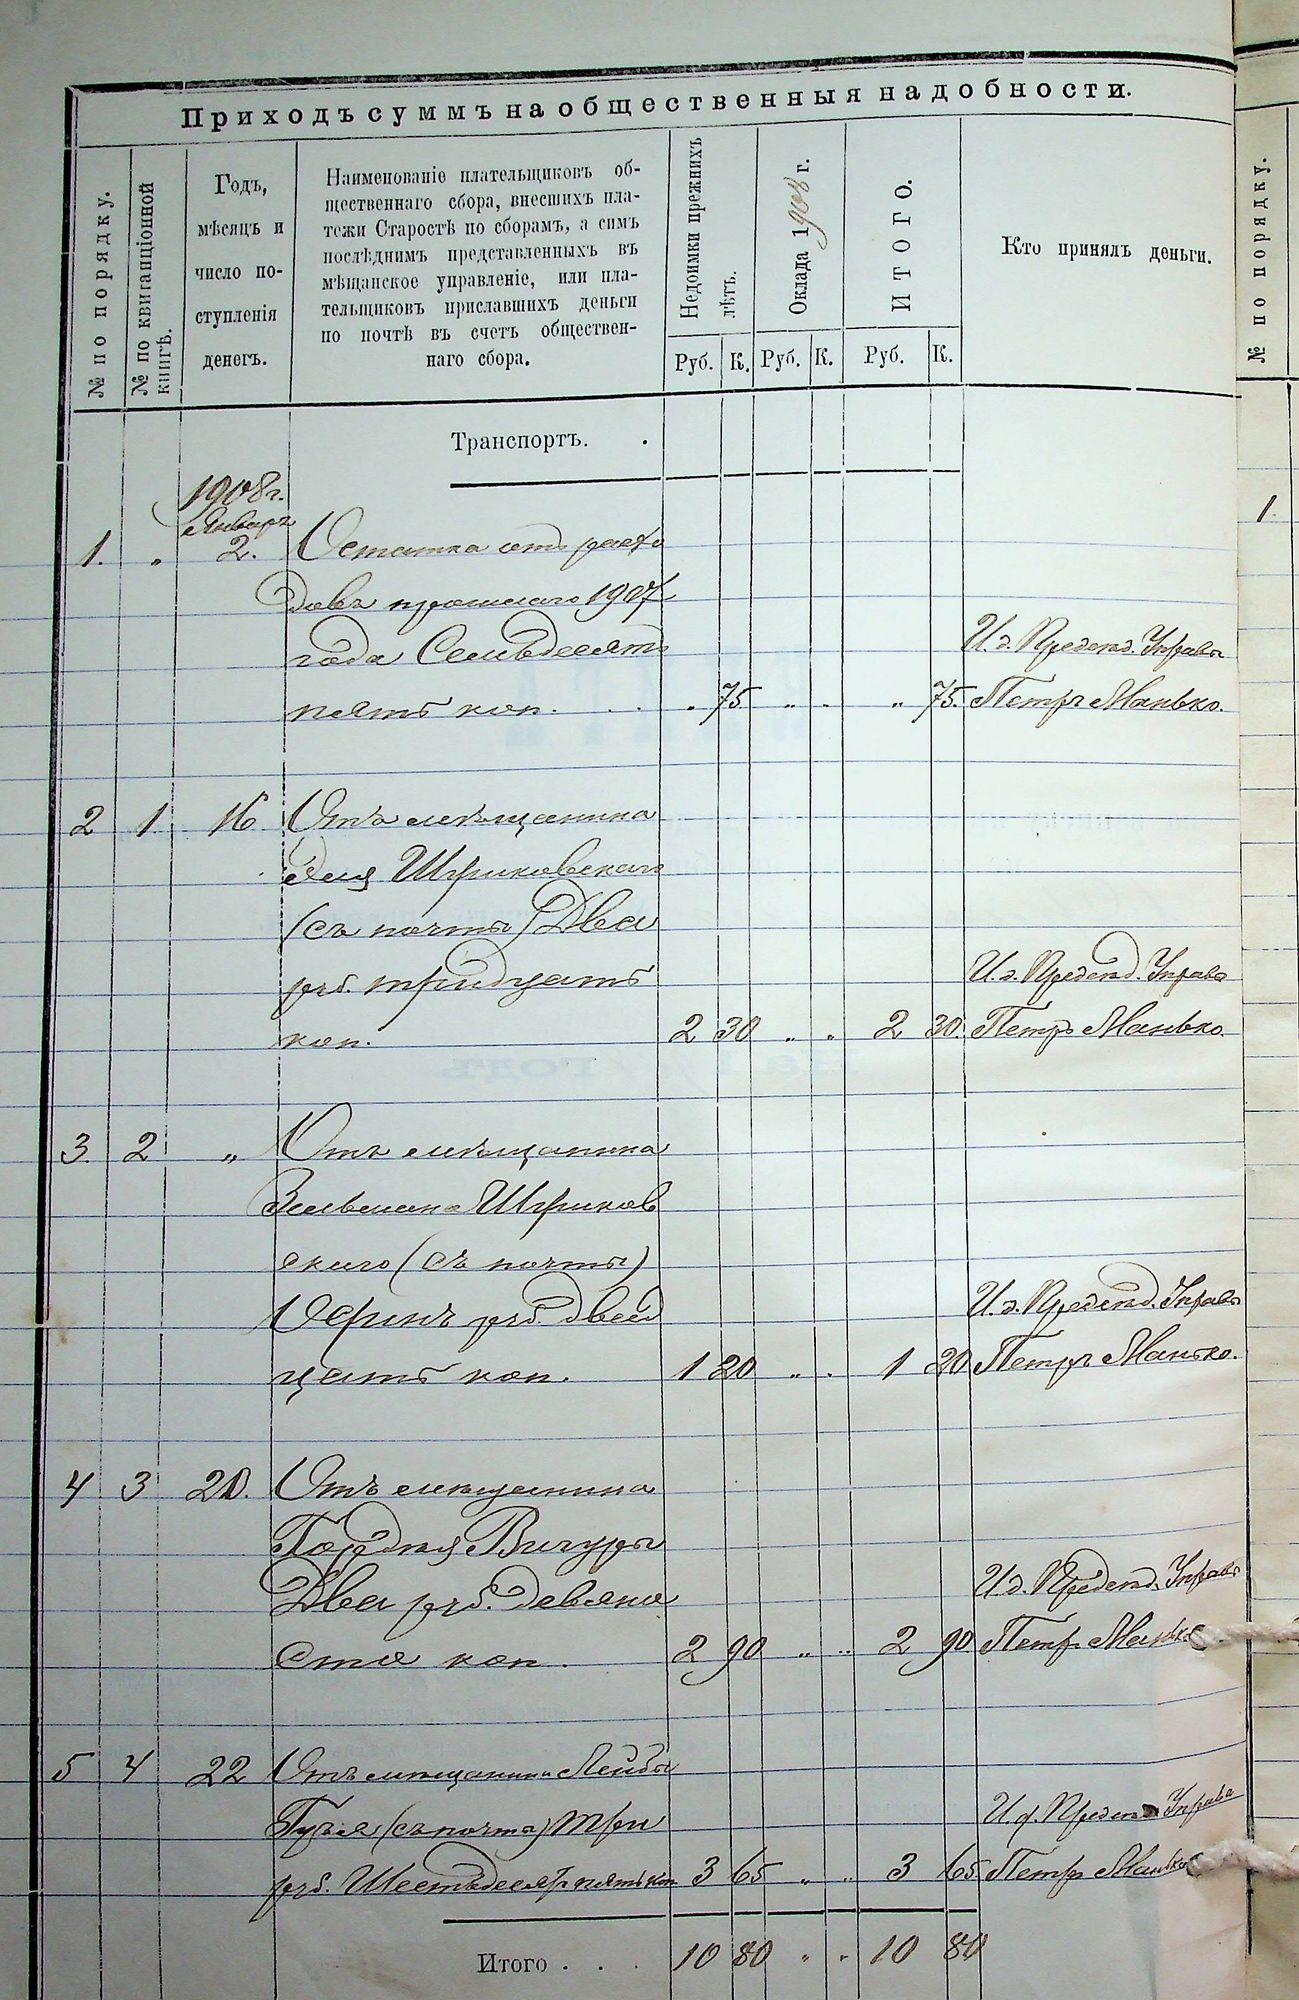 Приходъ суммъ на общественныя надобности.
№ по порядку.
№ по квитанціонной
книгѣ.
Годъ,
мѣсяцъ и
число по-
ступленія
денегъ.
Наименованіе плательщиковъ об-
щественнаго сбора, внесшихъ пла-
тежи Старостѣ по сборамъ, а симъ
послѣднимъ представленныхъ въ
мѣщанское управленіе, или пла-
тельщиковъ приславшихъ деньги
по почтѣ въ счетъ обществен-
наго сбора.
Недоимки прежнихъ
лѣтъ.
Оклада 1908 г.
ИТОГО.
Кто принялъ деньги.
Руб. К. Руб. К. Руб. К.
№ по порядку.
Транспортъ.
1908 г.
Январь
1. „ 2. Остатка отъ расхо
довъ прошлаго 1907
года Семьдесятъ И. д. Предсѣд. Управы
пять коп. . . „ 75 „ „ „ 75. Петръ Манько.
1.
2 1 16 Отъ мѣщанина
Шриковскаго
(съ почты) Два
руб. тридцать И. д. Предсѣд. Управы
коп. 2 30 „ „ 2 30. Петръ Манько.
3. 2 „ Отъ мѣщанина
Зельмана Шриков
скаго (съ почты)
Одинъ руб. двад И. д. Предсѣд. Управы
цать коп. 1 20 „ „ 1 20 Петръ Манько.
4 3 20. Отъ мѣщанина
Гордѣя Вичуры
Два руб. девяно И. д. Предсѣд. Управы
сто коп. 2 90 „ „ 2 90 Петръ Манько
5 4 22 Отъ мѣщанина Лейбы
(съ почты) Три И. д. Предсѣд. Управы
руб. Шестьдесятъ пять коп. 3 65 „ „ 3 65 Петръ Манько
Итого . . . 10 80 „ „ 10 80